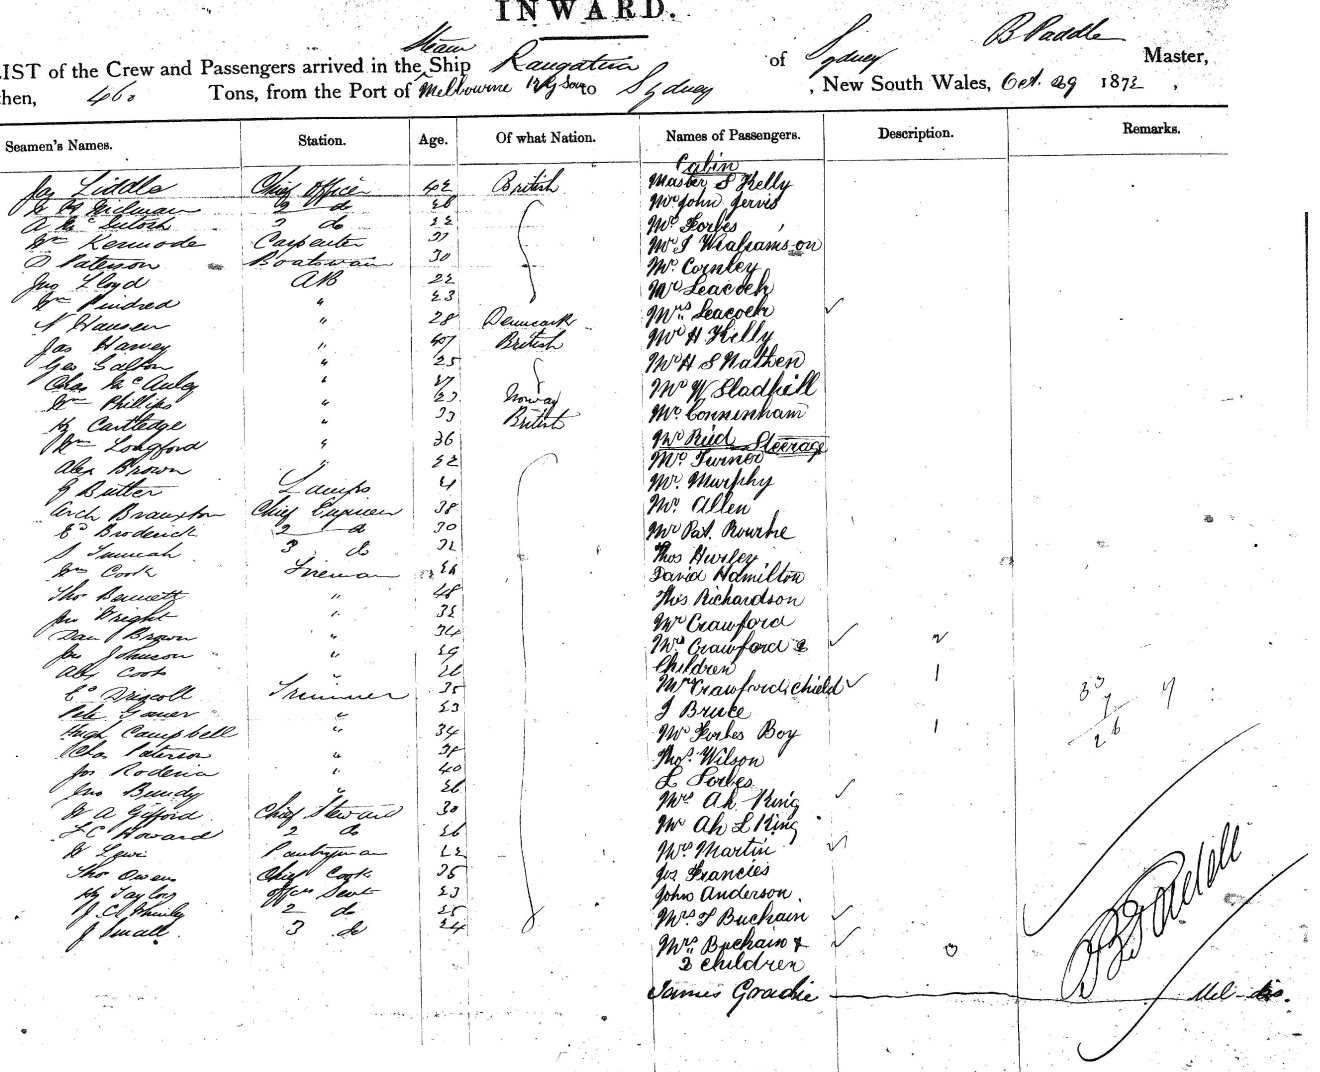 INWARD.
Steam
LIST of the Crew and Passengers arrived in the Ship Rangatira of Sydney B Paddle Master,
then, 460 Tons, from the Port of Melbourne to Sydney , New South Wales, Oct. 29 1872 ,
Seamen's Names. Station. Age. Of what Nation. Names of Passengers. Description. Remarks.
Cabin
Jas Liddle Chief Officer 42 British Master S Kelly
2 do 26 Mr John Jervis
A McIntosh 3 do 22 Mr Forbes
Wm Kermode Carpenter 31 Mr J Williamson
D Paterson Boatswain 30 Mr Cornley
Jno Lloyd AB 22 Mr Leacock
Wm Pindred " 23 Mrs Leacock ✓
N Hansen " 28 Denmark Mr H Kelly
Jas Harvey " 40 British
Geo Galton " 25 Mr H S Nathen
Chas McAuley " Mr W Sladfiell
Wm Phillips " 23 Norway
Hy Cartledge " 33 British Mr Conninham
Wm Longford " 36 Mr Ried
Steerage
Alex Brown " 22 Mr Turner
G Butter Lamps Mr. Murphy
Arch Brauxton Chief Engineer 38 Mr. Allen
Ed Broderick 2 do 30 Mr Pat. Rourke
3 do 32 Thos Hurley
Wm Cook Fireman 26 David Hamilton
Tho Bennett " 48 Thos Richardson
Jno Wright " 32 Mr Crawford
Dan Brown " 34 Mrs Crawford 2 ✓ 2
Jno Johnson " 29 Children
Alex Cook " 26 1
Ed Driscoll Trimmer 35 Mrs Crawford child ✓ 30 7
Pete Gamer " 23 J Bruce 7
Hugh Campbell " 34 Mr Forbes Boy 1 26
Chas Paterson " 38 Thos. Wilson
Jos Roderia " 40 L Forbes
Jno Bundy " 26 Mrs Ah King ✓
W A Gifford Chief Steward 30 Mr Ah L King
F C Howard 2 do 26
W Levi Pantryman 22 Mrs Martin ✓
Tho Owens Chief Cook 35 Jos Francies
Hy Taylor Offrs Servt 23 John Anderson.
2 do 25 Mrs T Buchain ✓
J Small. 3 do 24
Mrs Buchain & ✓
2 children
James Gradie